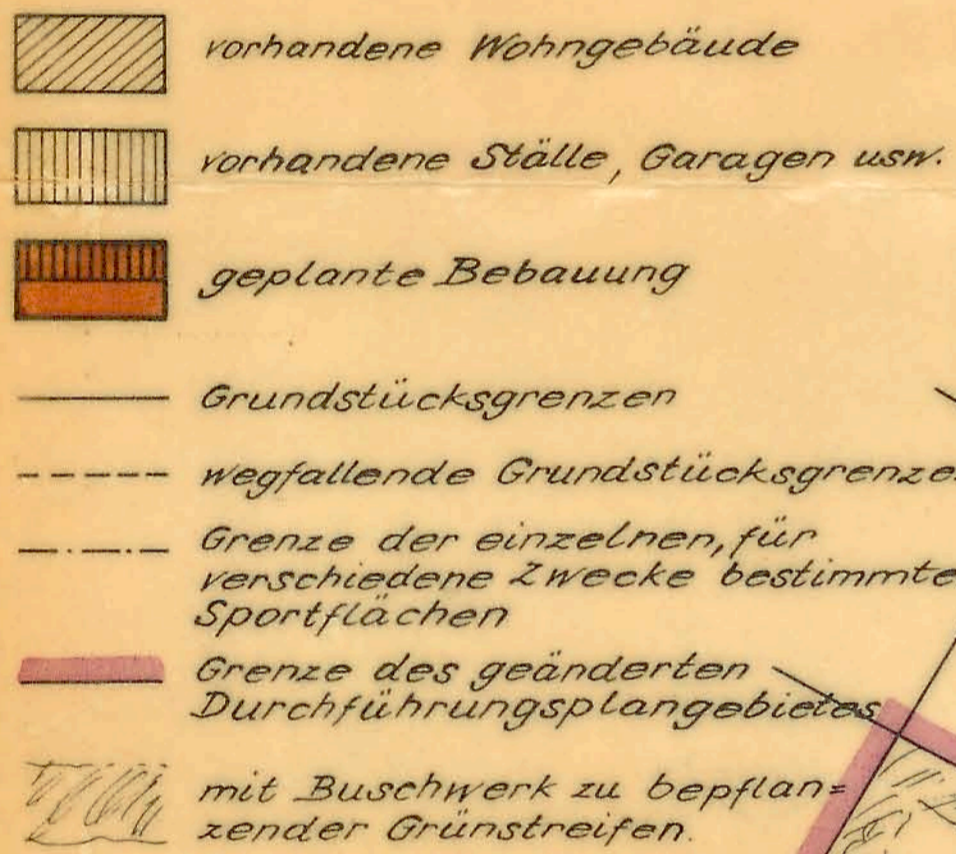 vorhandene Wohngebäude
vorhandene Ställe, Garagen usw.
geplante Bebauung
Grundstücksgrenzen
wegfallende Grundstücksgrenze
Grenze der einzelnen, für
verschiedene Zwecke bestimmte
Sportflächen
Grenze des geänderten
Durchführungsplangebietes
mit Buschwerk zu bepflan=
zender Grünstreifen.